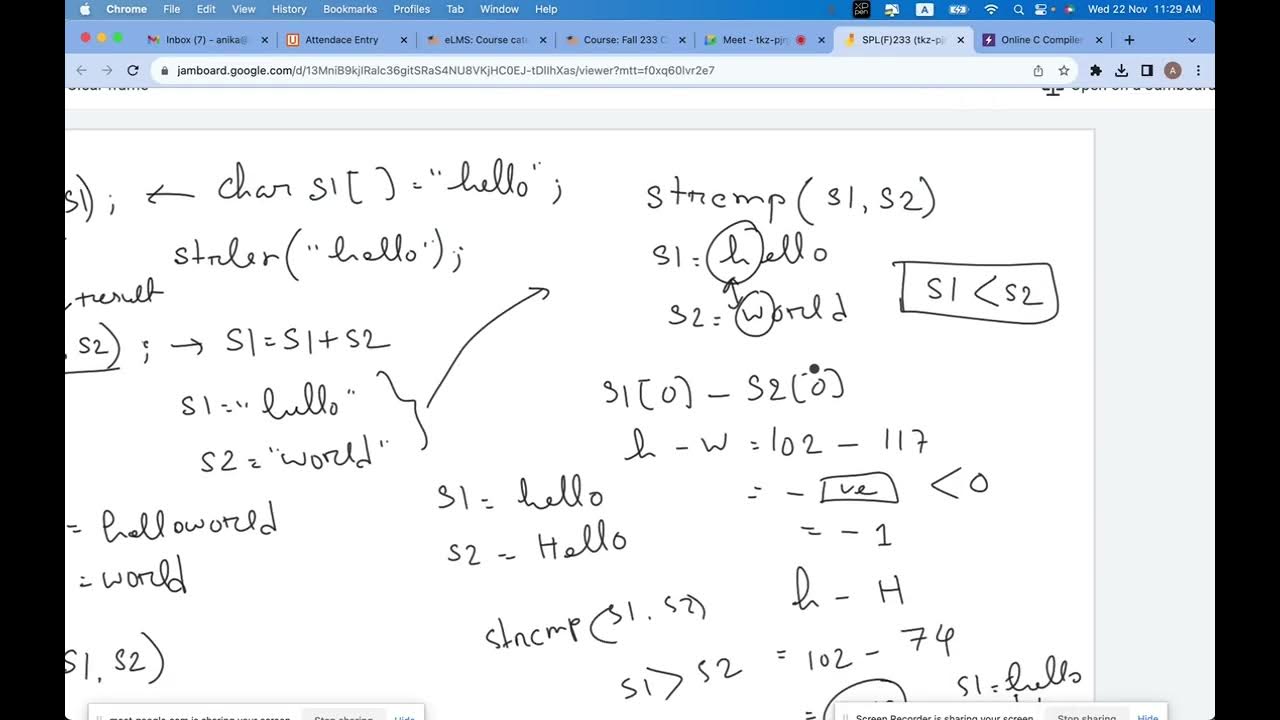 Chrome File Edit View History Bookmarks Profiles Tab Window Help
Wed 22 Nov 11:29 AM
Inbox (7) - anika@
Attendace Entry
eLMS: Course cat
Course: Fall 233 C
Meet - tkz-pjr
SPL(F)233 (tkz-pj
Online C Compiler
jamboard.google.com/d/13MniB9kjIRalc36gitSRaS4NU8VKjHC0EJ-tDIIhXas/viewer?mtt=f0xq60lvr2e7
s1); ← char s1[ ] = "hello";
strlen("hello");
result
, s2); → s1=s1+s2
s1="hello"
s2="world"
= helloworld
= world
s1, s2)
strcmp(s1, s2)
s1=hello
s2=world
s1<s2
s1[0) - s2[0)
h - w = 102 - 117
= - ve < 0
= - 1
s1 = hello
s2 = Hello
strcmp(s1, s2)
s1 > s2
h - H
= 102 - 74
=
s1=hello
meet.google.com is sharing your screen. Stop sharing Hide
Screen Recorder is sharing your screen. Stop sharing Hide